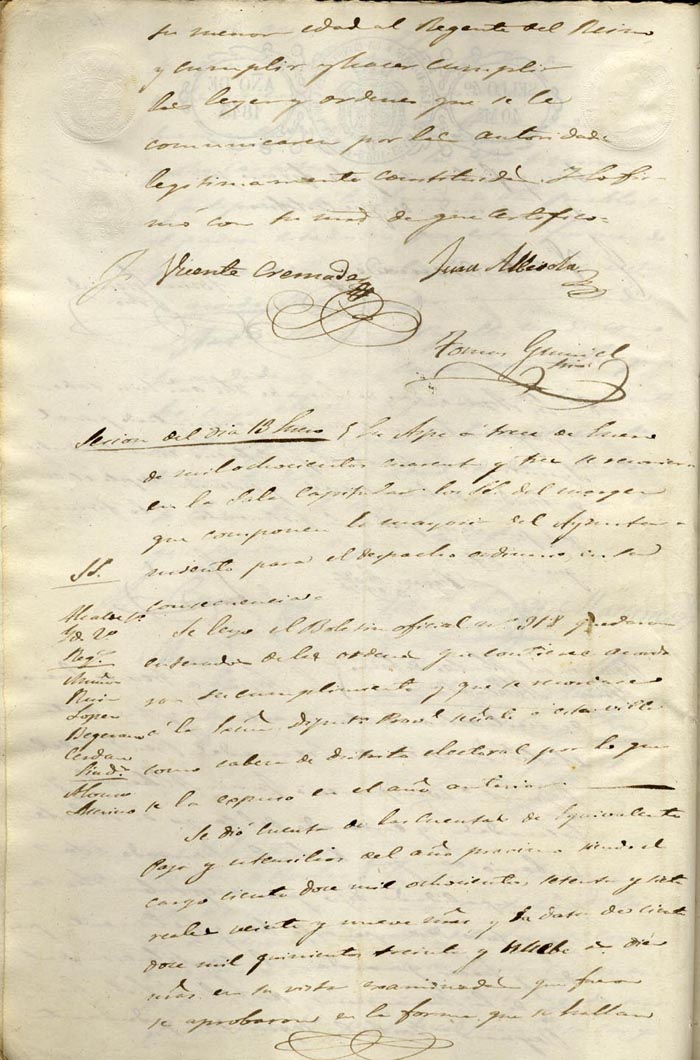 su menor edad al Regente del Reino,
y cumplir y hacer cumplir
las leyes y ordenes que se le
comunicaren por las autoridades
legitimamente constituidas. Y lo fir-
mó con su mrd de que certifico =
Vicente Cremades
Juan
Tomas
Sesion del dia 13 Enero § En Aspe á trece de Enero
de mil ochocientos cuarenta y tres se reunieron
en la Sala Capitular los SS. del margen
que componen la mayoria del Ayunta-
miento para el despacho ordinario, en su
consecuencia =
SS.
Alcalde 1º
Yd. 2º
Reg.s
Muñoz
Ruiz
Lopez
Begerano
Cerdan
Sind.s
Alonso
Asencio
Se leyo el Boletin oficial nº 918 quedaron
enterados de las ordenes que contiene acorda
ron su cumplimiento y que se recordase
á la Diputa Provl señale á esta villa
como cabeza de distrito electoral por lo que
se la espuso en el año anterior.
Se dió cuenta de las Cuentas de Equivalente
Paja y utensilios del año proximo siendo el
cargo ciento doce mil ochocientos setenta y siete
reales veinte y nueve mrs y la data de ciento
doce mil quinientos treinta y nueve con diez
mrs. en su vista examinadas que fueron
se aprobaron en la forma que se hallan